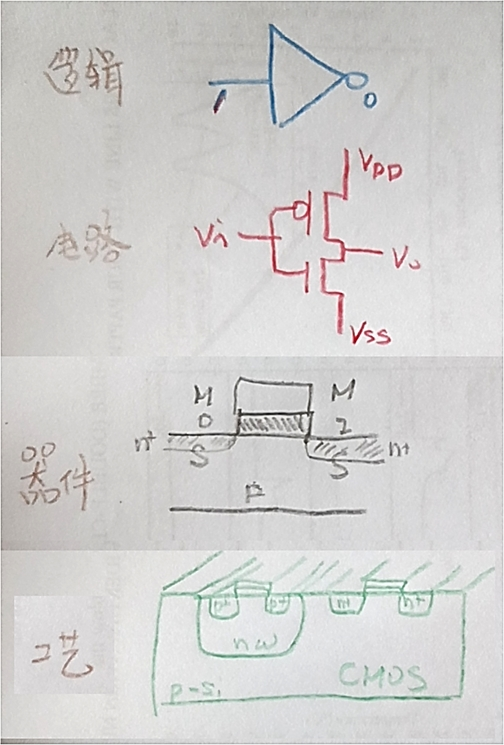 逻辑
1
0
电路
VDD
Vi
Vo
VSS
器件
M M
O 2
n+ n+
S S
P
工艺
p+ p+ n+ n+
nw
CMOS
p-Si